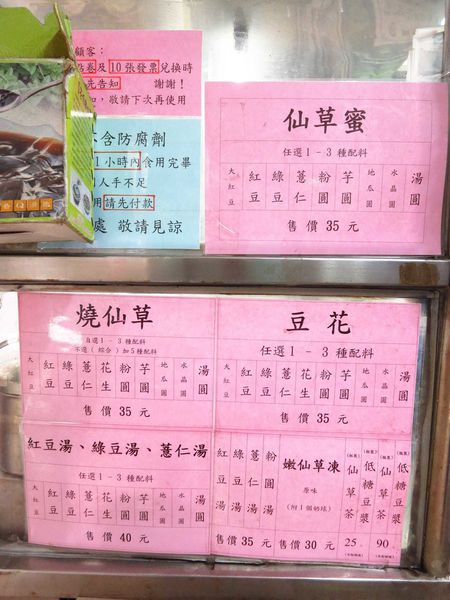 顧客：
點卷及10張發票兌換時
先告知 謝謝！
敬請下次再使用
不含防腐劑
1小時內食用完畢
人手不足
用請先付款
處 敬請見諒
仙草蜜
任選1-3種配料
大紅豆 紅豆 綠豆 薏仁 粉圓 芋圓 地瓜圓 水晶圓 湯圓
售價35元
燒仙草
自選1-3種配料
不選(綜合)加5種配料
大紅豆 紅豆 綠豆 薏仁 花生 粉圓 芋圓 地瓜圓 水晶圓 湯圓
售價35元
豆花
任選1-3種配料
大紅豆 紅豆 綠豆 薏仁 花生 粉圓 芋圓 地瓜圓 水晶圓 湯圓
售價35元
紅豆湯、綠豆湯、薏仁湯
任選1-3種配料
大紅豆 紅豆 綠豆 薏仁 花生 粉圓 芋圓 地瓜圓 水晶圓 湯圓
售價40元
紅豆湯 綠豆湯 薏仁湯 粉圓湯
售價35元
嫩仙草凍
原味
(附1個奶球)
售價30元
仙草茶 低糖豆漿
25元
仙草茶 低糖豆漿
90元